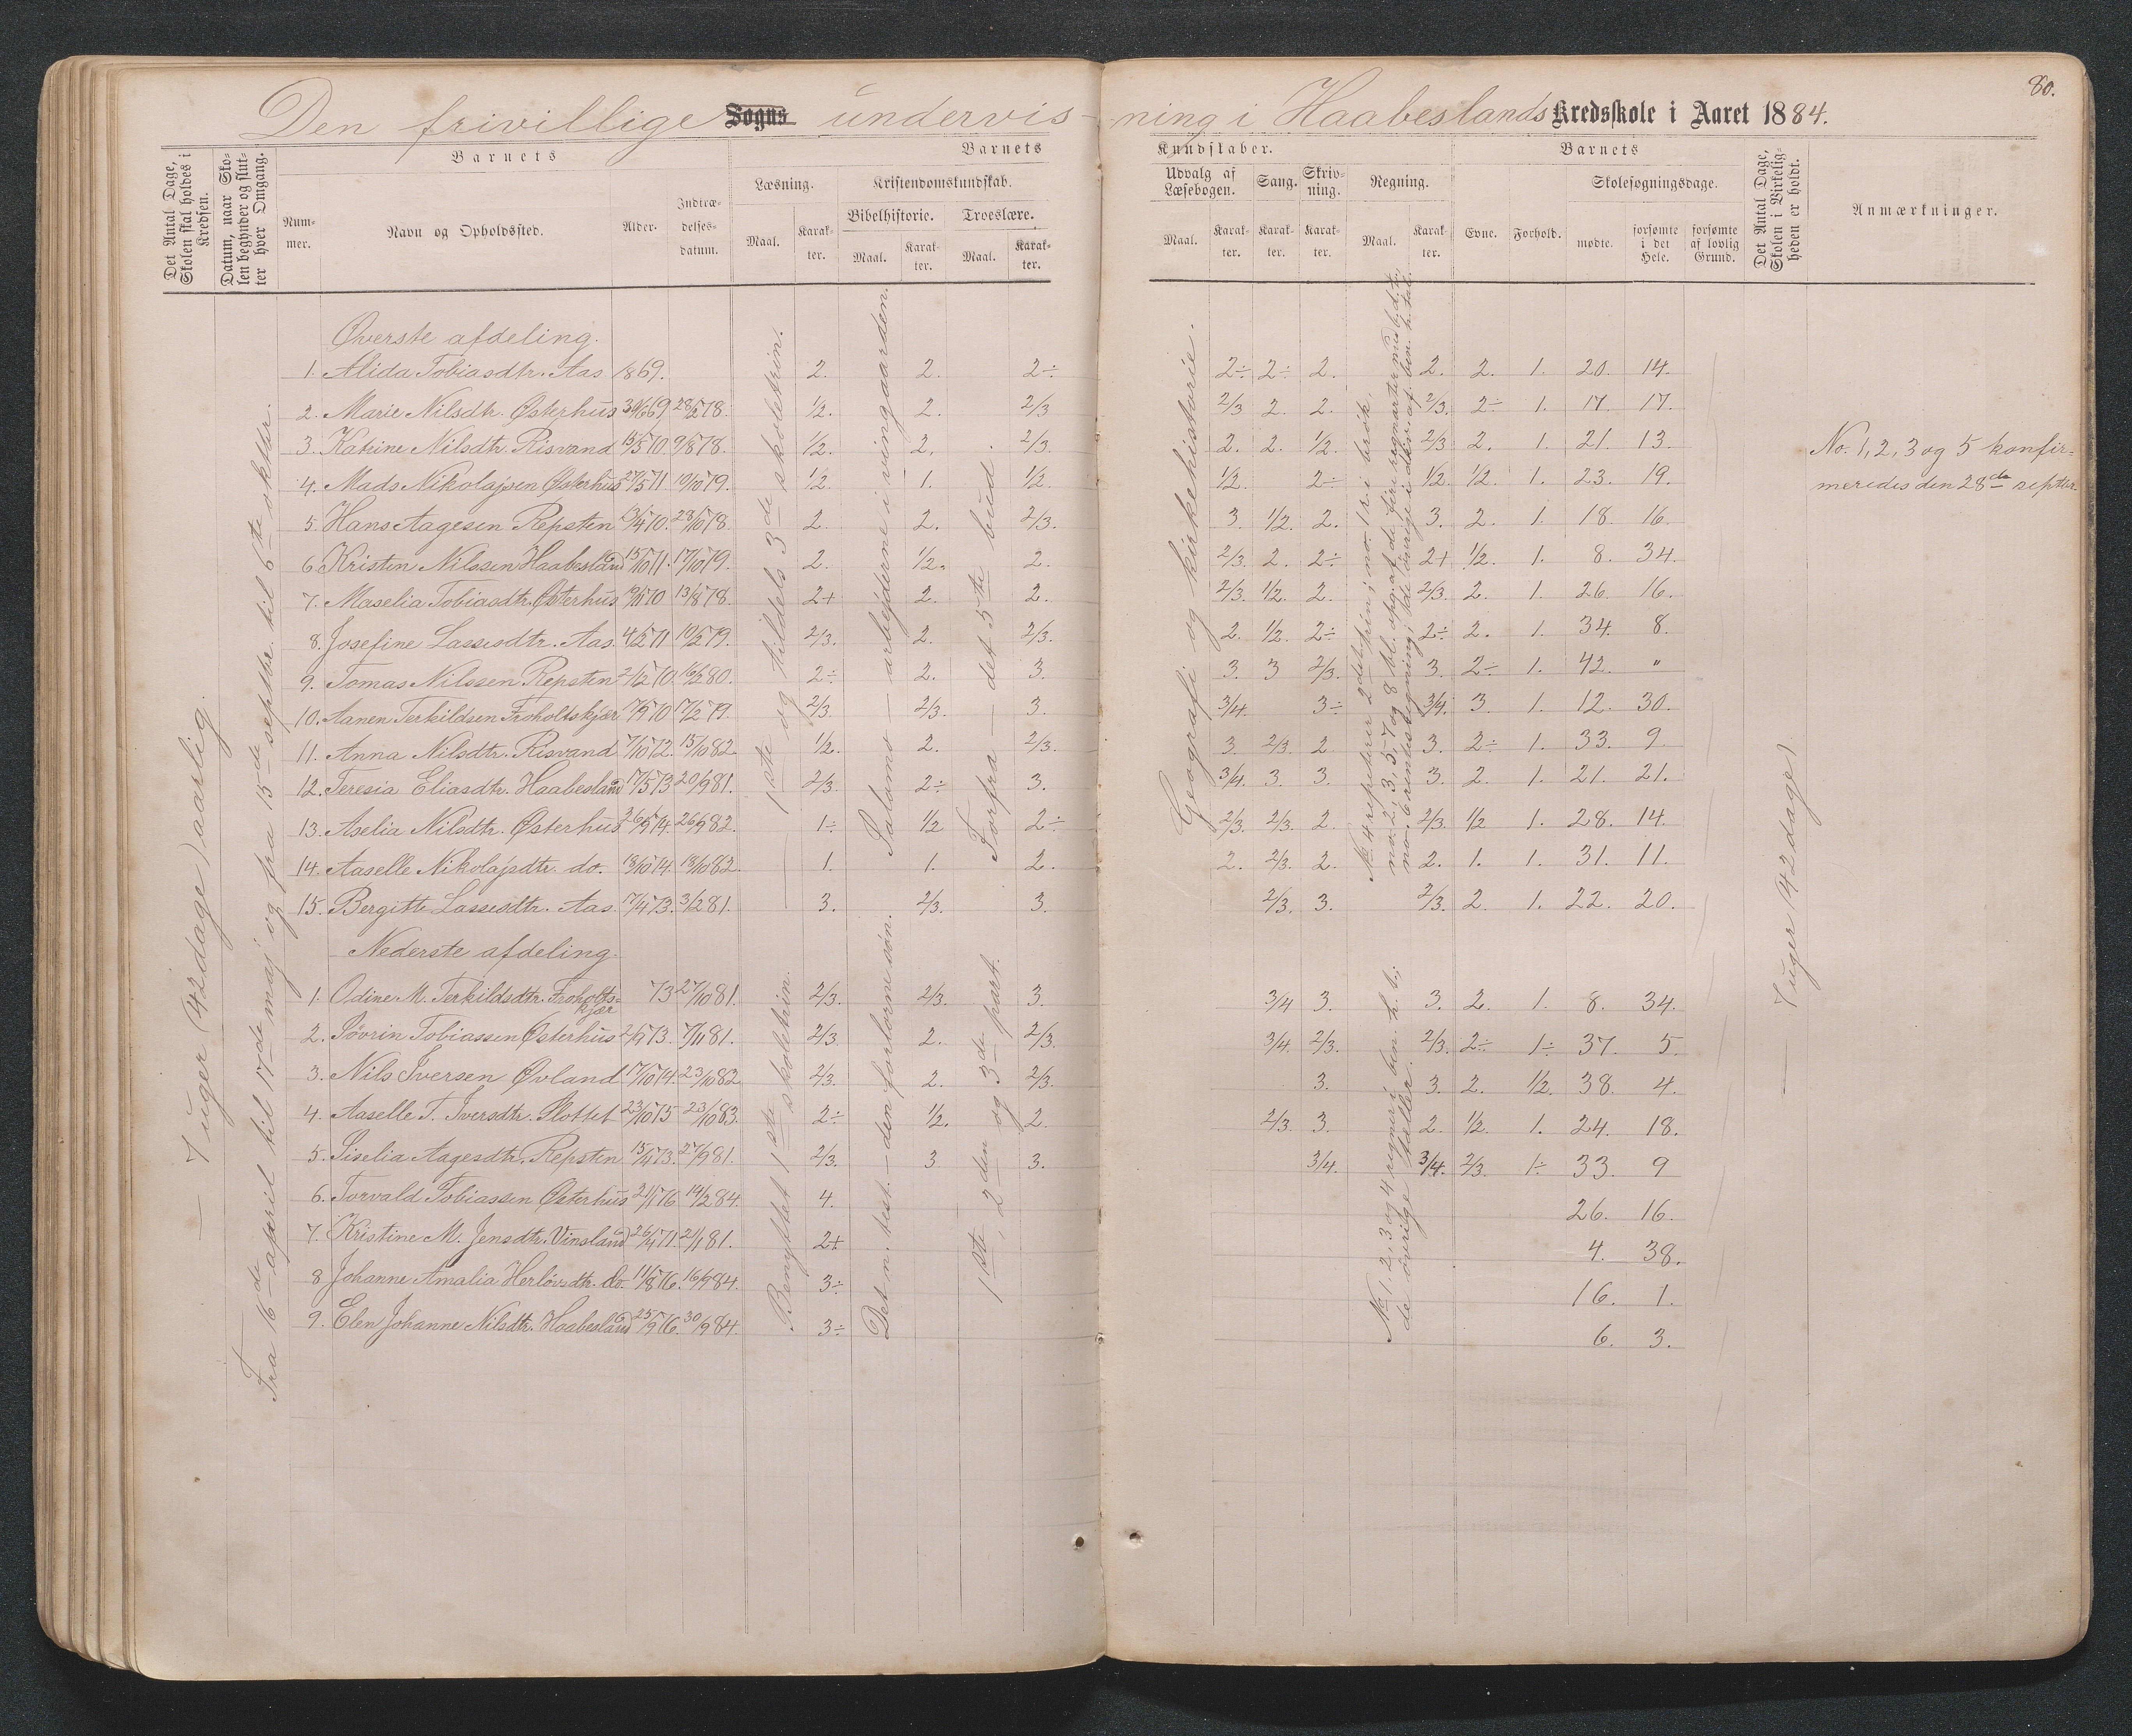 80.
Den frivillige Sogns undervis-ning i Haabeslands Kredsskole i Aaret 1884.
Det Antal Dage, Skolen skal holdes i Kredsen.
Datum, naar Skolen begynder og slutter hver Omgang.
Barnets
Barnets Kundskaber.
Barnets
Det Antal Dage, Skolen i Virkeligheden er holdt.
Anmærkninger.
Nummer.
Navn og Opholdssted.
Alder.
Indtrædelsesdatum.
Læsning.
Kristendomskundskab.
Bibelhistorie.
Troeslære.
Udvalg af Læsebogen.
Sang.
Skrivning.
Regning.
Evne.
Forhold.
Skolesøgningsdage.
Maal. Karakter. Maal. Karakter. Maal. Karakter. Maal. Karakter. Karakter. Karakter. Maal. Karakter.
mødte. forsømte i det Hele. forsømte af lovlig Grund.
— 7 uger (42 dage) aarlig
Fra 16de april til 17de maj og fra 15de septbr. til 6te oktbr.
Øverste afdeling.
1. Alida Tobiasdtr. Aas 1869. 2. 2. 2÷ 2÷ 2÷ 2. 2. 2. 1. 20. 14.
2. Marie Nilsdtr. Østerhus 30/6 69 28/5 78. 1/2. 2. 2/3 2/3 2. 2. 2/3. 2÷ 1. 17. 17.
3. Katrine Nilsdtr. Risvand 15/5 70. 9/8 78. 1/2. 2. 2/3. 2. 2. 1/2. 2/3 2. 1. 21. 13.
4. Mads Nikolajsen Østerhus 27/5 71 10/10 79. 1/2. 1. 1/2. 1/2. 2÷ 1/2. 1/2. 1. 23. 19.
5. Hans Aagesen Repsten 13/4 70. 28/10 78. 2. 2. 2/3. 3. 1/2. 2. 3. 2. 1. 18. 16.
6. Kristen Nilssen Haabesland 15/10 71. 17/10 79. 2. 1/2. 2. 2/3. 2. 2÷ 2+ 1/2. 1. 8. 34.
7. Maselia Tobiasdtr. Østerhus 19/11 70 13/8 78. 2+ 2. 2. 2/3. 1/2. 2. 2/3. 2. 1. 26. 16.
8. Josefine Lassesdtr. Aas. 4/5 71 10/2 79. 2/3. 2. 2/3. 2. 1/2. 2÷ 2÷ 2. 1. 34. 8.
9. Tomas Nilssen Repsten 2/12 70. 16/2 80. 2÷ 2. 3. 3. 3 2/3. 3. 2÷ 1. 42. "
10. Aanen Terkildsen Froholtskjær 17/9 70 17/2 79. 2/3. 2/3. 3. 3/4. 3÷ 3/4. 3. 1. 12. 30.
11. Anna Nilsdtr. Risvand 7/10 72. 15/10 82. 1/2. 2. 2/3. 3. 2/3. 2 3. 2÷ 1. 33. 9.
12. Teresia Eliasdtr. Haabesland 17/5 73 20/9 81. 2/3. 2÷ 3. 3/4 3. 3. 3. 2. 1. 21. 21.
13. Aselia Nilsdtr. Østerhus 26/9 74. 26/9 82. 1÷ 1/2 2÷ 2/3. 2/3. 2. 2/3. 1/2 1. 28. 14.
14. Aaselle Nikolajsdtr. do. 18/10 74. 18/10 82. 1. 1. 2. 2. 2/3. 2. 2. 1. 1. 31. 11.
15. Bergitte Lassesdtr. Aas. 17/4 73. 3/2 81. 3. 2/3. 3. 2/3. 3. 2/3. 2. 1. 22. 20.
1ste og tildels 3de skoletrin.
Salamo — arbejderne i vingaarden.
Forfra — det 5te bud.
Geografi og kirkehistorie.
No 4 repeterer 2det trin; no. 1 r. i brøk,
No. 1, 2, 3 og 5 konfirmeredes den 28de septbr.
Nederste afdeling.
1. Odine M. Terkildsdtr. Froholtskjær 73 27/10 81. 2/3. 2/3. 3. 3/4 3. 3. 2. 1. 8. 34.
2. Sövrin Tobiassen Østerhus 73. 7/11 81. 2/3 2. 2/3. 3/4. 2/3. 2/3. 2÷ 1÷ 37. 5.
3. Nils Iversen Øvland 17/10 74. 23/10 82 2/3. 2. 2/3. 3. 3. 2. 1/2. 38. 4.
4. Aaselle T. Iversdtr. Slottet 23/10 75 23/10 83. 2÷ 1/2. 2. 2/3. 3. 2 1/2. 1. 24. 18.
5. Siselia Aagesdtr. Repsten 15/4 73. 27/9 81. 2/3. 3 3. 3/4. 3/4. 2/3. 1÷ 33. 9
6. Torvald Tobiassen Østerhus 21/1 76 14/2 84. 4. 26. 16.
7. Kristine M. Jensdtr. Vinsland 26/4 71. 21/1 81. 2+ 4. 38.
8 Johanne Amalia Herlövsdtr. do. 11/8 76. 16/9 84. 3÷ 16. 1.
9. Elen Johanne Nilsdtr. Haabesland 25/9 76. 30/9 84. 3÷ 6. 3.
Benyttet 1ste skoletrin.
Det n. test. — den forlorne søn.
1ste, 2den og 3de part.
No 1. 2, 3 og 4 regner i ben. h. t.;
de øvrige tæller.
— 7 uger (42 dage)